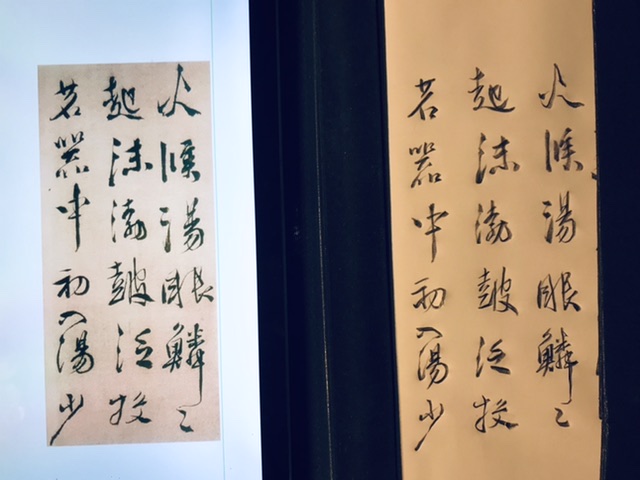 火候湯眼鱗〻
起沫渤鼓泛投
茗器中初入湯少
火候湯眼鱗〻
起沫渤鼓泛投
茗器中初入湯少